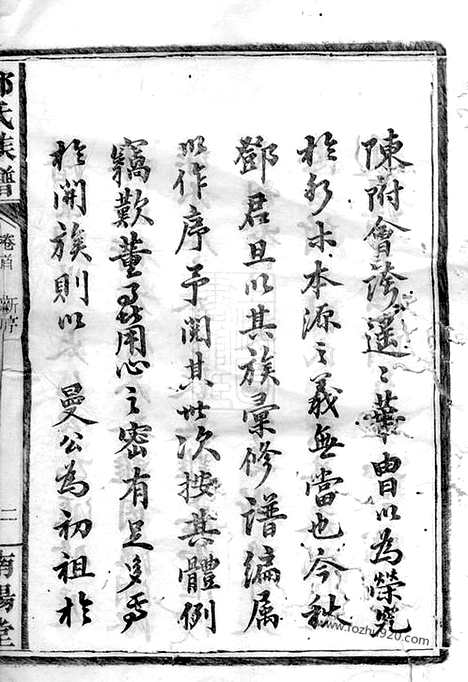 陳附會誇遥〻華胄以為榮究
於水木本源之義無當也今秋
鄧君旦以其族彙修譜編属
以作序予閱其世次按其體例
竊歎董事用心之密有足多焉
於開族則以 曼公為初祖於
氏族譜
卷首 新序 二 南陽堂
www.fozhu920.com